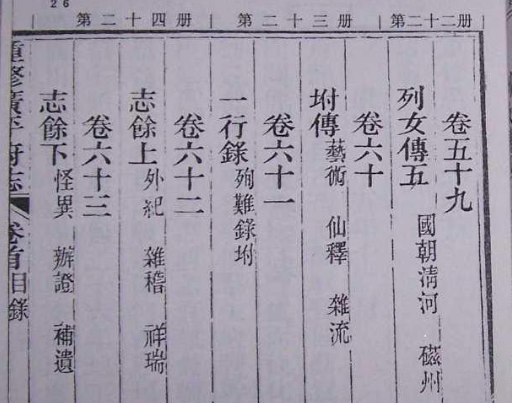 26
第二十二册
第二十三册
第二十四册
卷五十九
列女傳五 國朝清河 磁州
卷六十
坿傳 藝術 仙釋 雜流
卷六十一
一行錄 殉難錄坿
卷六十二
志餘上 外紀 雜稽 祥瑞
卷六十三
志餘下 怪異 辦證 補遺
重修廣平府志 卷首目錄